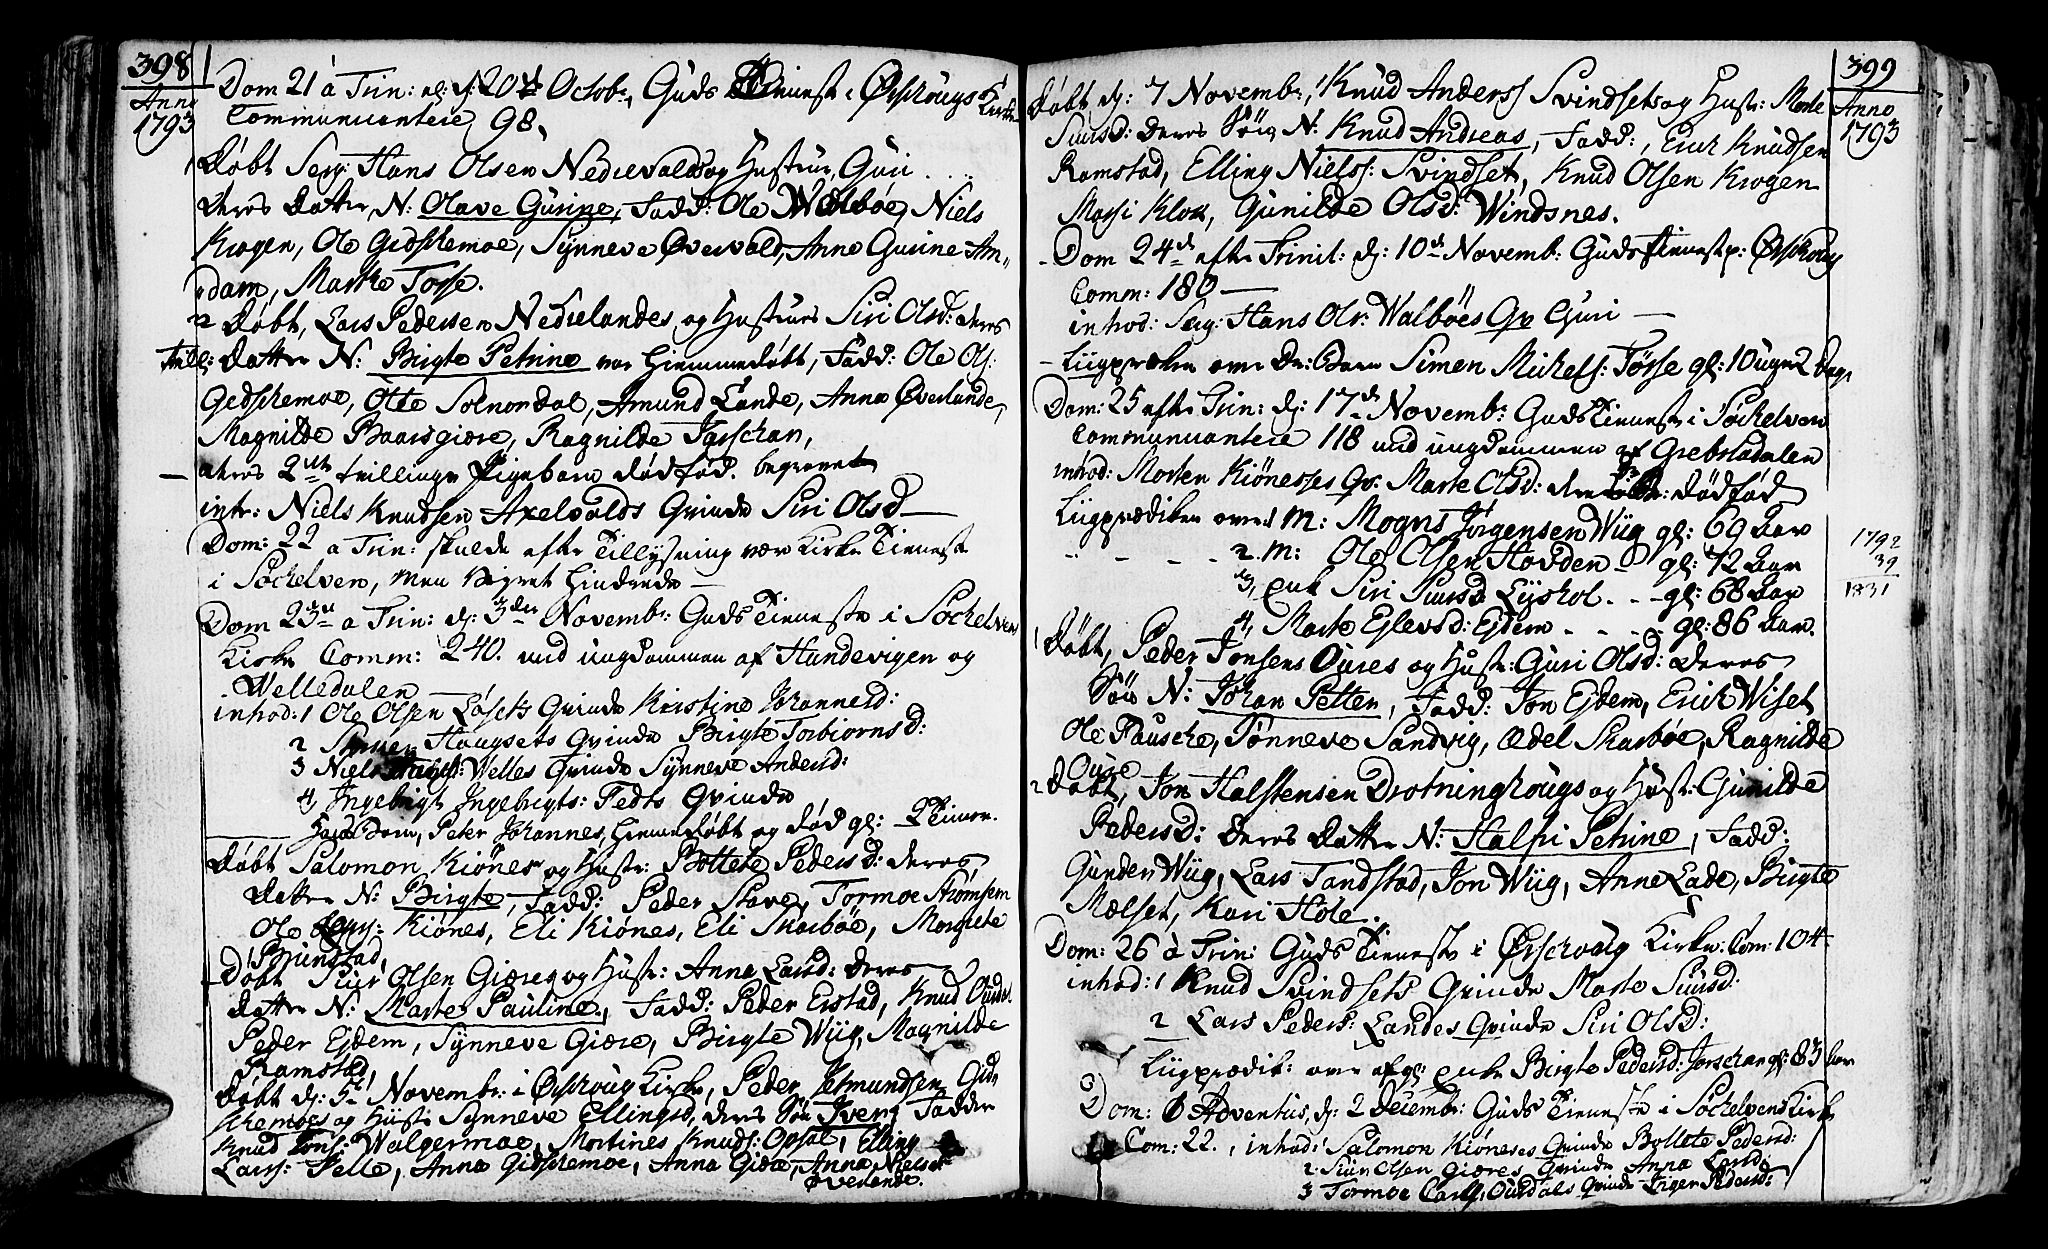 398
Anno
1793
Dom 21 à Trin: d: 20de Octobr, Guds Tieneste i Ørschougs Kirke
Communicantere 98.
1 døbt Serg: Hans Olsen Nedrevolds og Hustrue Guri
deres datter N: Olave Gurine, Fadd: Ole Walbøe, Niels
Krogen, Ole Gidschemoe, Synneve Øvrevold, Anne Gurine Am-
dam, Marthe Tosse.
2 døbt, Lars Pedersen Nedrelandes og Hustrues Siri Olsd: deres
trill: datter N: Birgte Petrine var hiemmedøbt, Fadd: Ole Ols:
Gedschemoe, Otte Solnordal, Amund Lande, Anne Øverlande,
Magnilde Baarsgiære, Ragnilde Jarschan,
deres 2den trillinge Pigebarn dødfød. begravet
intr: Niels Knudsen Axelvolds Qvinde Siri Olsd
Dom: 22 a Trin: skulde efter Tillysning vær Kirke Tieneste
i Søchelven, men Veiret hindrede
Dom 23de a Trin: d: 3die Novembr: Guds Tieneste i Søchelven
Kirke Comm: 240. med ungdommen af Hundevigen og
Welledalen
introd: 1 Ole Olsen Løsets Qvinde Kirstine Johannesd:
2 Haugsets Qvinde Birgte Torbiørnsd:
3 Niels Welles Qvinde Synneve Andersd:
4, Ingebrigt Ingebrigts: Tedts Qvinde
Barn, Peter Johannes, hiemmedøbt og død gl: 2 Timer.
døbt Salomon Kiønes og Hustr: Bollete Pedersd: deres
datter N: Birgte, Fadd: Peder Stave, Tormoe Strømsem
Ole Kiønes, Eli Kiønes, Eli Skarbøe, Margrete
Brunstad,
Døbt Siur Olsen Giæres og Hustr: Anna Larsd: deres
datter N: Marte Pauline, Fadd: Peder Erstad, Knud
Peder Ejdem, Synneve Giære, Birgte Wiig, Magnilde
Ramstad,
døbt d: 5te Novembr: i Ørschoug Kirke, Peder Jetmundsen Gid-
schemoes og Hustr: Synneve Ellingsd, deres Søn Iver, Fadder
Knud Jons: Walgermoe, Mortines Knuds: Opsal, Elling
Larss: Velle, Anna Gidschemoe, Anna Giære, Anna Nielsd
Øverlande.
399
Anno
1793
døbt d: 7 Novembr, Knud Anderss Svindsets og Hustr: Marte
Siursd: deres Søn N: Knud Andreas, Fadd:, Erich Knudsen
Ramstad, Elling Nielss: Svindset, Knud Olsen Krogen
Massi Klok, Gunilde Olsd: Windsnes.
Dom 24de efter Trinit: d: 10de Novemb: Guds Tieneste: Ørschoug
Comm: 180
introd: Serg: Hans Ols: Walbøes Qv Guri
Liigprædken over Dr: Barn Simen Mickels: Tosse gl: 10 uger 2 dage
Dom: 25 efter Trin: d: 17de Novemb: Guds Tieneste i Søchelven
Communicantere 118 med ungdommen af Grebstadalen
introd: Morten Kiønesses Qv: Marte Olsd: deres dødfød
Liigprædiken over 1 M: Mogns Jørgensen Wiig gl: 69 Aar
2. M: Ole Olsen Hovden gl: 72 Aar
3, enk Siri Siursd Lyshol - - gl: 68 Aar
4, Marte Ejlevsd: Ejdem - - - gl: 86 Aar.
1792
39
1831
1 døbt, Peder Jonsens Oures og Hustr: Guri Olsd: deres
Søn N: Johan Petter, Fadd: Jon Ejdem, Erich Wiset
Ole Pausche, Sønneve Sandvig, Ædel Skarbøe, Ragnilde
Oure
2 døbt, Jon Halstensen Drotninghougs og Hustr: Gunilde
Pedersd: deres datter N: Halpi Petrine, Fadd:
Gunder Wiig, Lars Tandstad, Jon Wiig, Anne Lade, Birgte
Mælset, Kari Hole.
Dom: 26 à Trin: Guds Tieneste i Ørschoug Kirke: Com: 104
introd: 1 Knud Svindsets Qvinde Marte Siursd:
2 Lars Peders: Landes Qvinde Siri Olsd:
Liigprædik: over afg: enke Birgte Pedersd: Jarschan gl: 83 Aar
Dom: 1 Adventus, d: 2 Decembr: Guds Tieneste i Søchelvens Kirke
Com: 22., introd: Salomon Kiøneses Qvinde Bollete Pedersd:
2 Siur Olsen Giæres Qvinde Anna Larsd:
3 Tormoe Ourdals Qvinde Inger Pedersd: